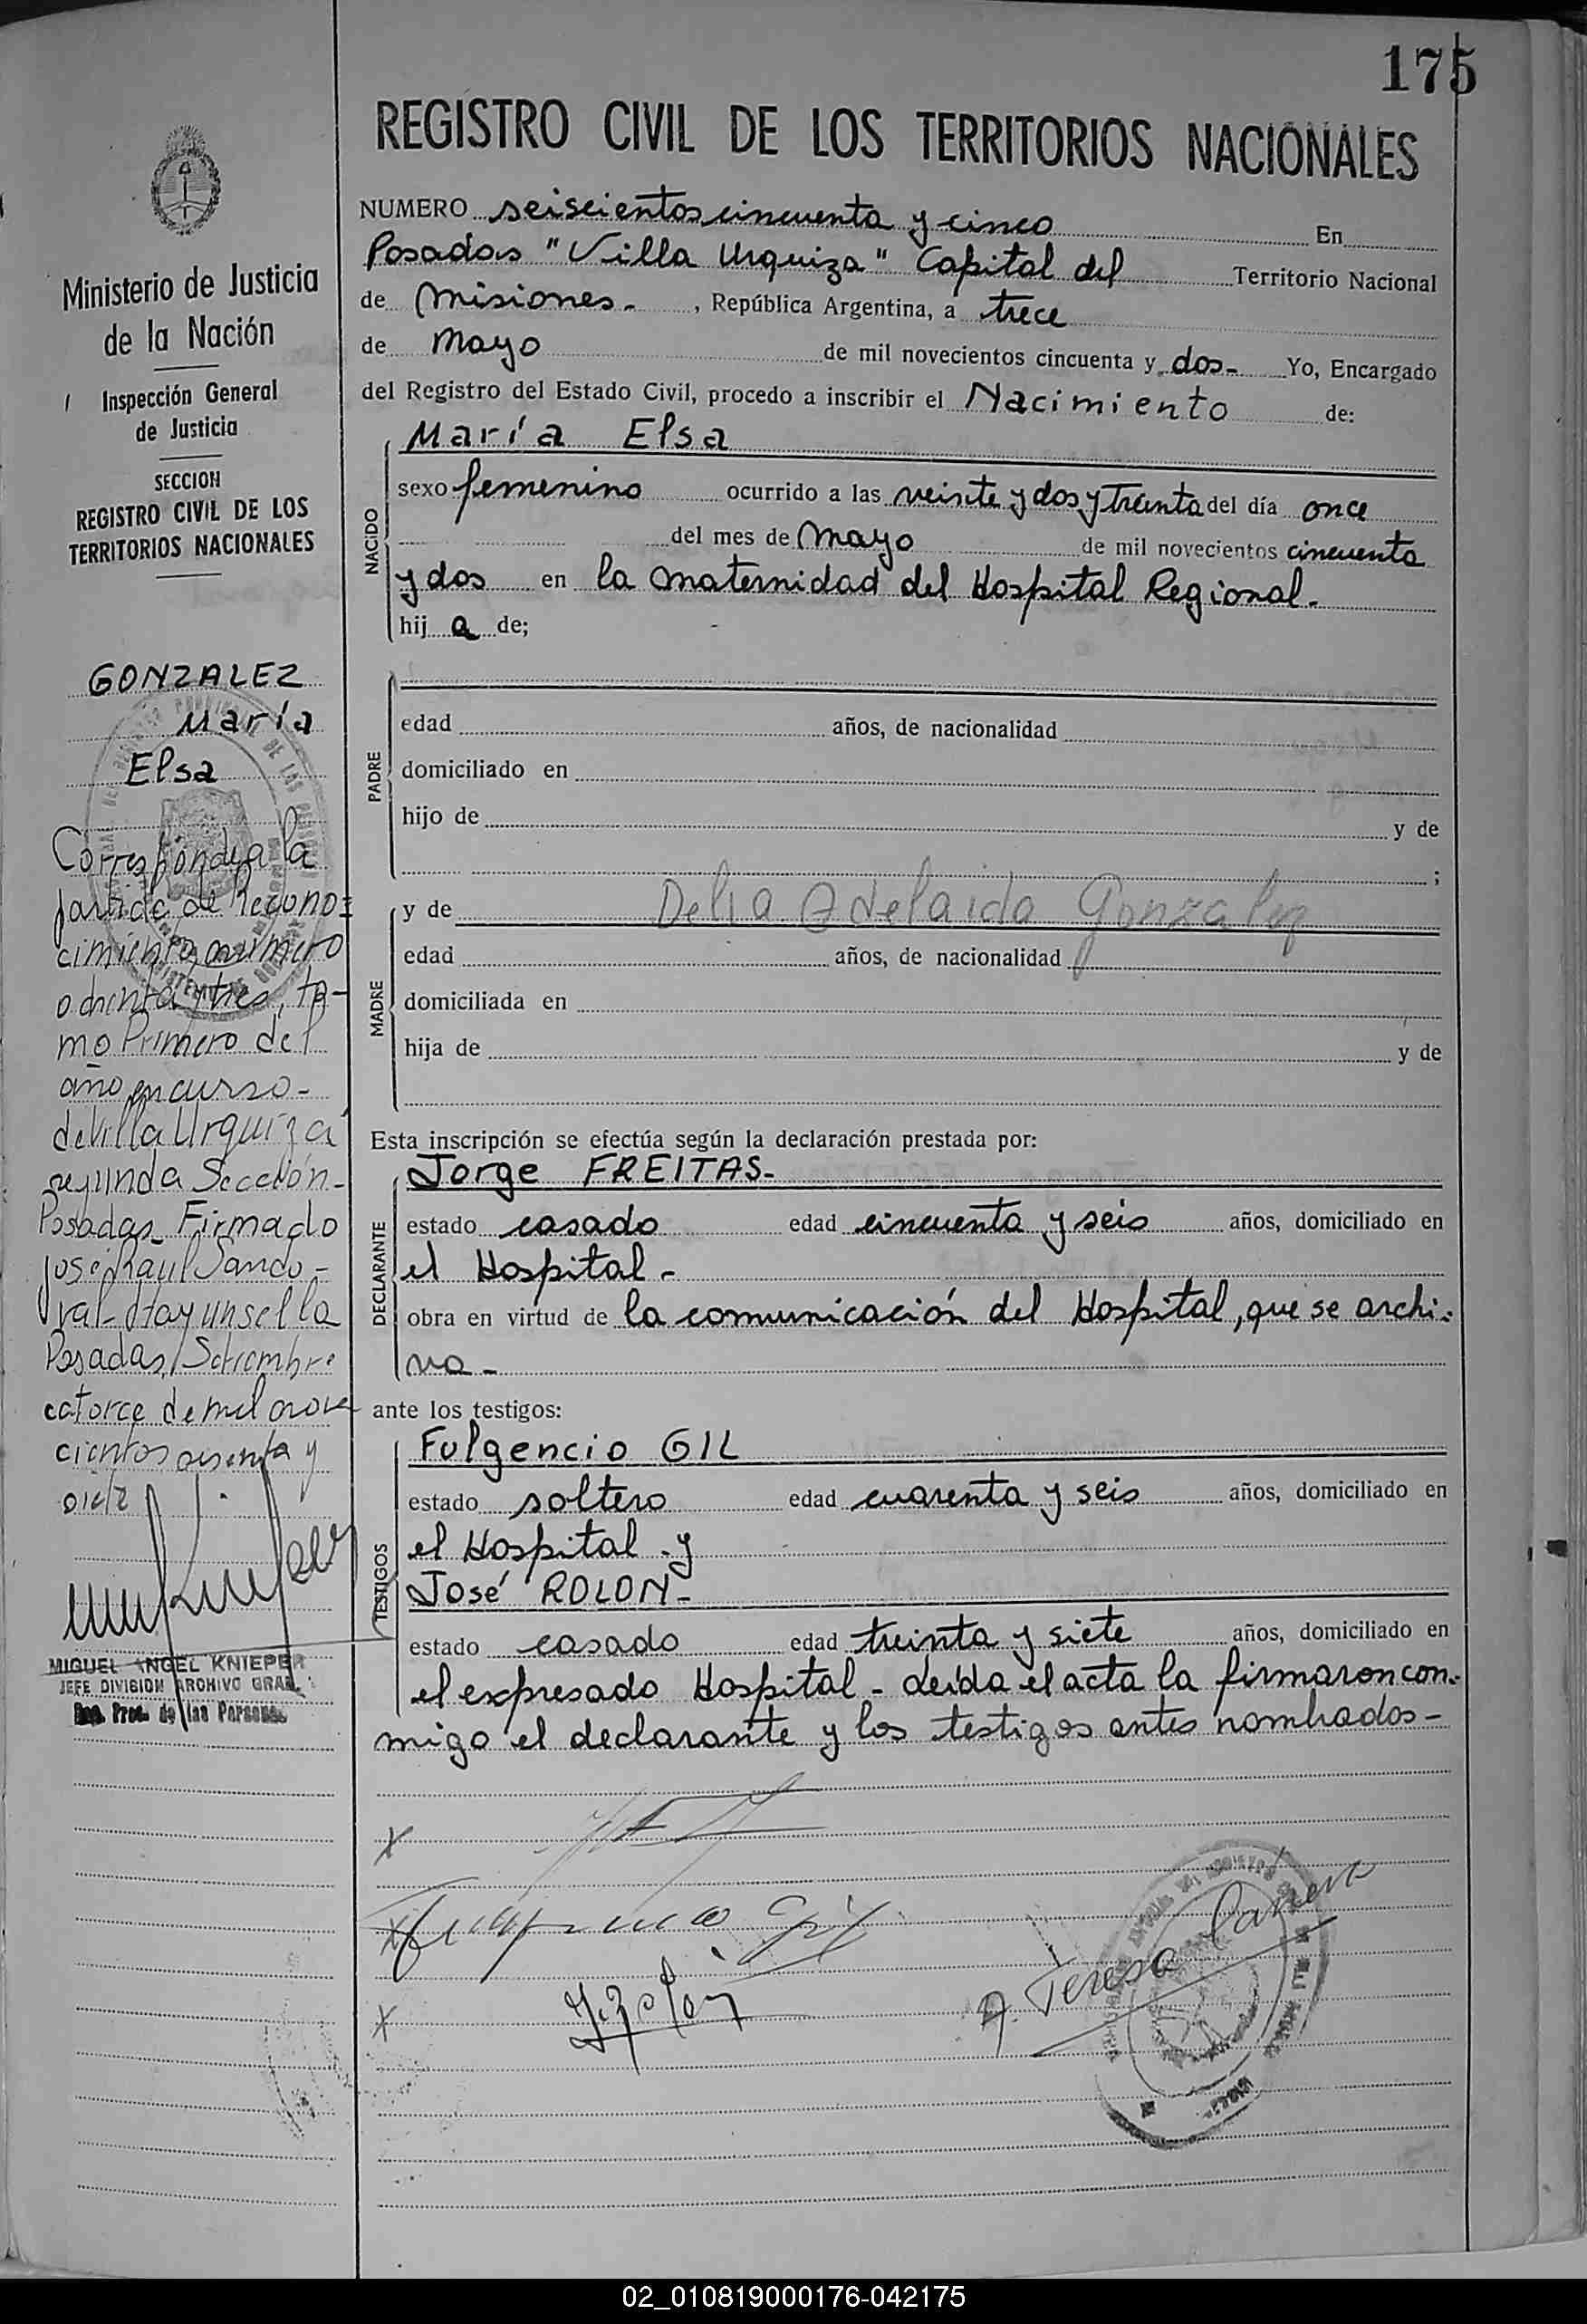 175
REGISTRO CIVIL DE LOS TERRITORIOS NACIONALES
Ministerio de Justicia
de la Nación
Inspección General
de Justicia
SECCION
REGISTRO CIVIL DE LOS
TERRITORIOS NACIONALES
GONZALEZ
María
Elsa
Corresponde a la
partida de Recono=
cimiento número
ochenta y tres, to-
mo Primero del
año en curso-
de Villa Urquiza
segunda Sección-
Posadas- Firmado
José Raul Sando-
val- Hay un sello
Posadas, Setiembre
catorce de mil nove
cientos sesenta y
siete
MIGUEL ANGEL KNIEPER
JEFE DIVISION ARCHIVO GRAL.
Reg. Prov. de las Personas
NUMERO seiscientos cincuenta y cinco En
Posadas "Villa Urquiza" Capital del Territorio Nacional
de Misiones- , República Argentina, a trece
de Mayo de mil novecientos cincuenta y dos- Yo, Encargado
del Registro del Estado Civil, procedo a inscribir el Nacimiento de:
NACIDO
María Elsa
sexo femenino ocurrido a las veinte y dos y treinta del día once
del mes de Mayo de mil novecientos cincuenta
y dos en la Maternidad del Hospital Regional-
hij a de;
PADRE
edad años, de nacionalidad
domiciliado en
hijo de y de
;
MADRE
y de Delia Adelaida Gonzalez
edad años, de nacionalidad
domiciliada en
hija de y de
Esta inscripción se efectúa según la declaración prestada por:
DECLARANTE
Jorge FREITAS-
estado casado edad cincuenta y seis años, domiciliado en
el Hospital-
obra en virtud de la comunicación del Hospital, que se archi-
va-
ante los testigos:
TESTIGOS
Fulgencio GIL
estado soltero edad cuarenta y seis años, domiciliado en
el Hospital -y
José ROLON-
estado casado edad treinta y siete años, domiciliado en
el expresado Hospital- Leida el acta la firmaron con-
migo el declarante y los testigos antes nombrados-
x
x Fulgencio Gil
x J. Rolón
Teresa
02_010819000176-042175